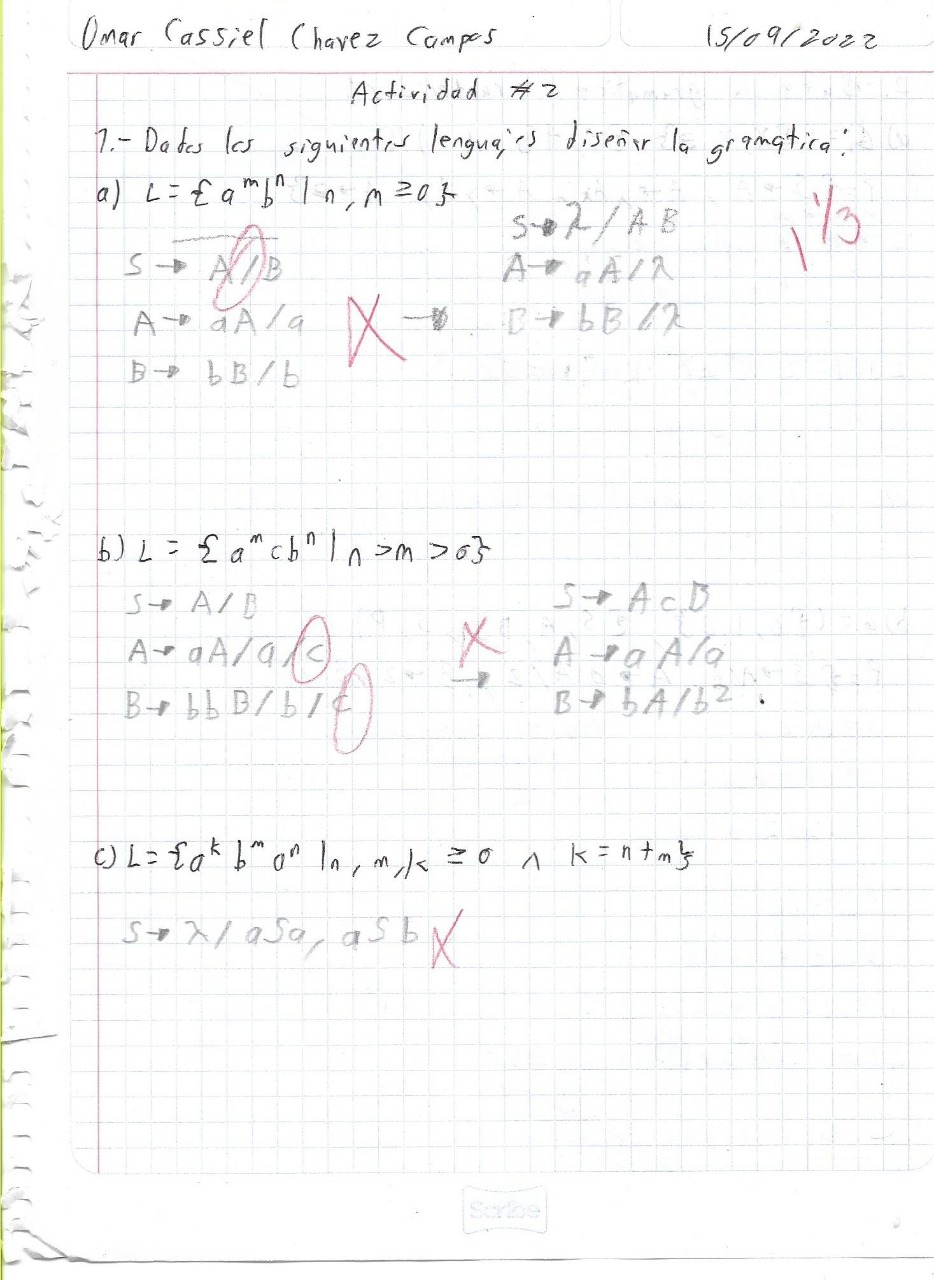 Omar Cassiel Chavez Campos 15/09/2022
Actividad #2
1.- Dados los siguientes lenguajes diseñar la gramática:
a) L = { a^m b^n | n, m ≥ 0 }
1 1/3
S → A/B
A → aA/a
B → bB/b
X →
S → λ/AB
A → aA/λ
B → bB/λ
b) L = { a^m c b^n | n > m > 0 }
S → A/B
A → aA/a/c
B → bbB/b/c
X →
S → AcB
A → aA/a
B → bA/b².
c) L = { a^k b^m a^n | n, m, k ≥ 0 ∧ k = n + m }
S → λ/aSa, aSb X
Scribe